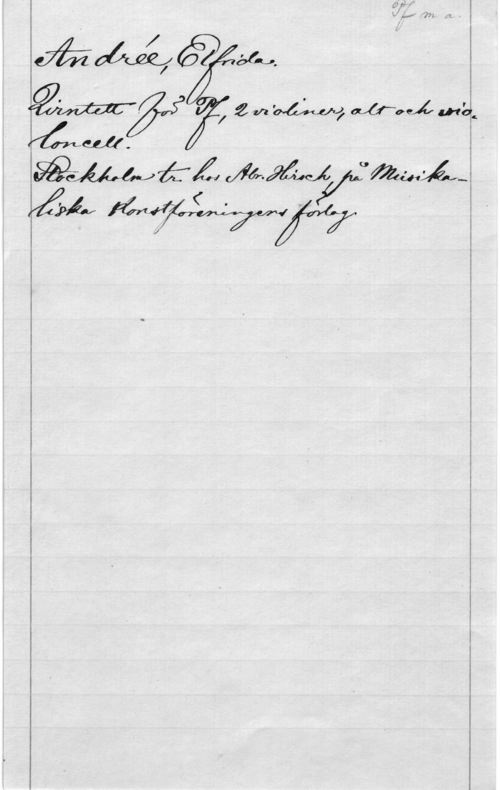 Pf m a.
Andrée, Elfrida.
Qvintett för Pf, 2 violiner, alt och vio-
loncell.
Stockholm tr. hos Abr. Hirsch, på Musika-
liska Konstföreningens förlag.